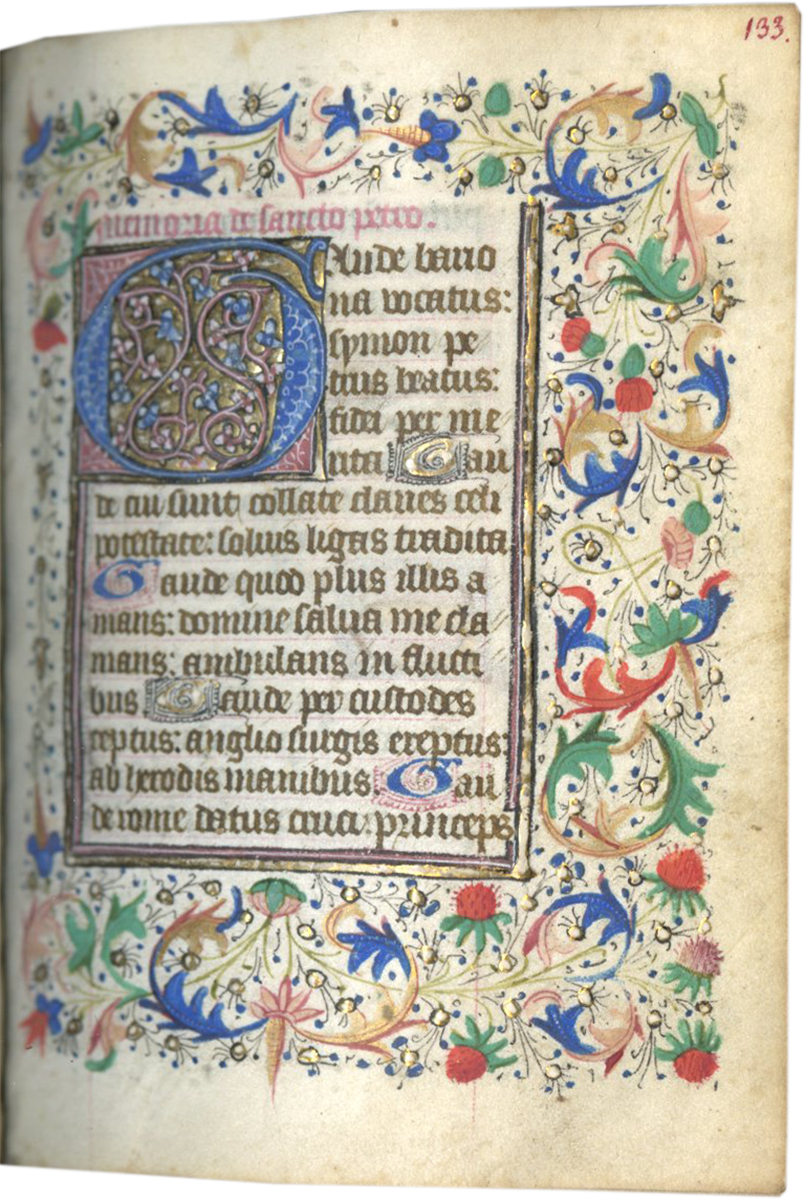 133.
memoria de sancto petro.
GAude bario
na vocatus:
symon pe
trus beatus:
fidei per me
rita Gau
de cui sunt collate claues celi
potestate: soluis ligas tradita
Gaude quod plus illis a
mans: domine salua me cla
mans: ambulans in flucti
bus Gaude per custodes
ceptus: anglio surgis ereptus:
ab herodis manibus. Gau
de rome datus cruci: princeps